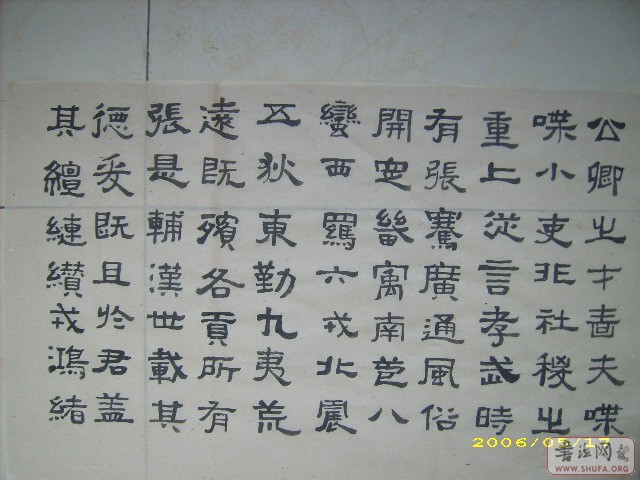 公卿之才嗇夫喋
喋小吏非社稷之
重上從言孝武時
有張騫廣通風俗
開定畿寓南苞八
蠻西羈六戎北震
五狄東勤九夷荒
遠既殯各貢所有
張是輔漢世載其
德爰既且於君蓋
其繵縺纘戎鴻緒
2006/05/17
書法网
WWW.SHUFA.ORG